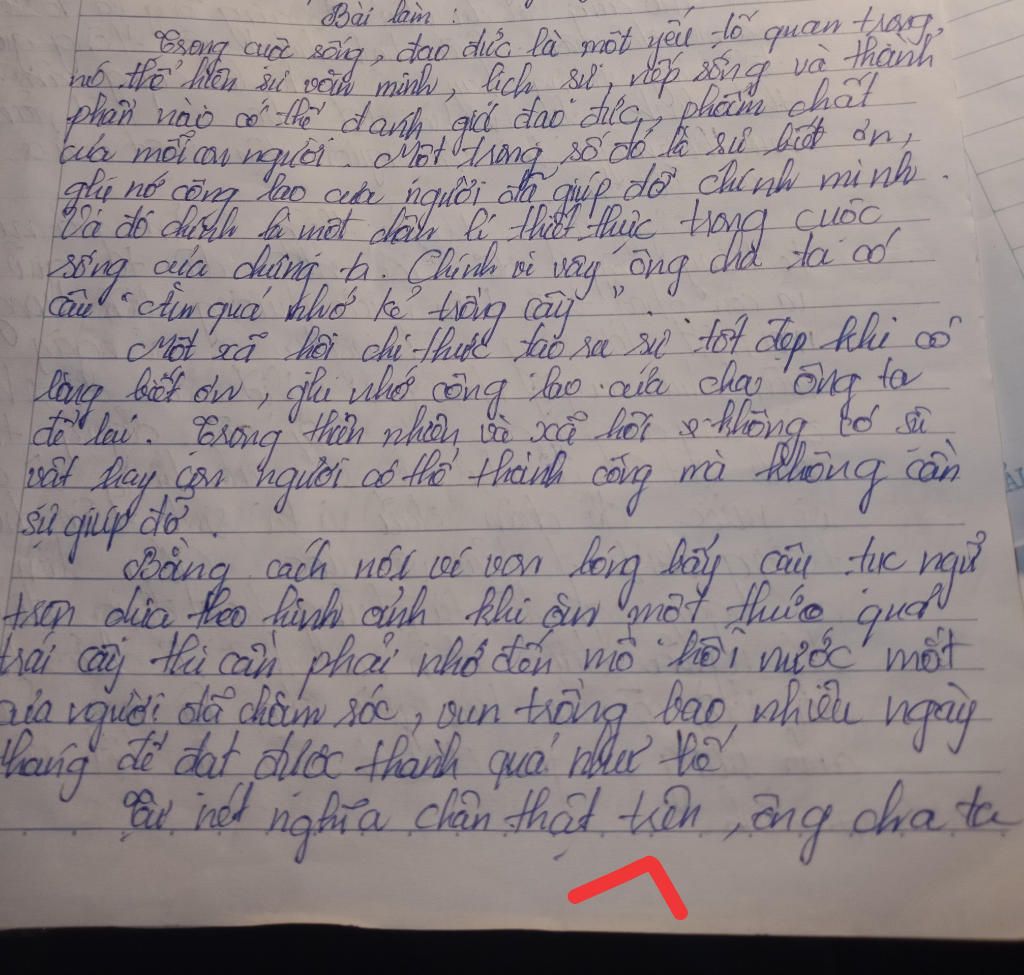 Bài làm :
Trong cuộc sống, đạo đức là một yếu tố quan trọng,
nó thể hiện sự văn minh, lịch sự, nếp sống và thành
phần nào có thể đánh giá đạo đức, phẩm chất
của mỗi con người. Một trong số đó là sự biết ơn,
ghi nớ công lao của người đã giúp đỡ chính mình.
Và đó chính là một chân lí thiết thực trong cuộc
sống của chúng ta. Chính vì vậy ông cha ta có
câu "Ăn quả nhớ kẻ trồng cây"
Một xã hội chỉ thực tạo ra sự tốt đẹp khi có
lòng biết ơn, ghi nhớ công lao của cha ông ta
để lại. Trong thiên nhiên và xã hội không có sự
vật hay con người có thể thành công mà không cần
sự giúp đỡ.
Bằng cách nói ví von bóng bẩy câu tục ngữ
trên dựa theo hình ảnh khi ăn một thức quả
trái cây thì cần phải nhớ đến mồ hôi nước mắt
của người đã chăm sóc, vun trồng bao nhiêu ngày
tháng để đạt được thành quả như thế
Từ nét nghĩa chân thật trên, ông cha ta